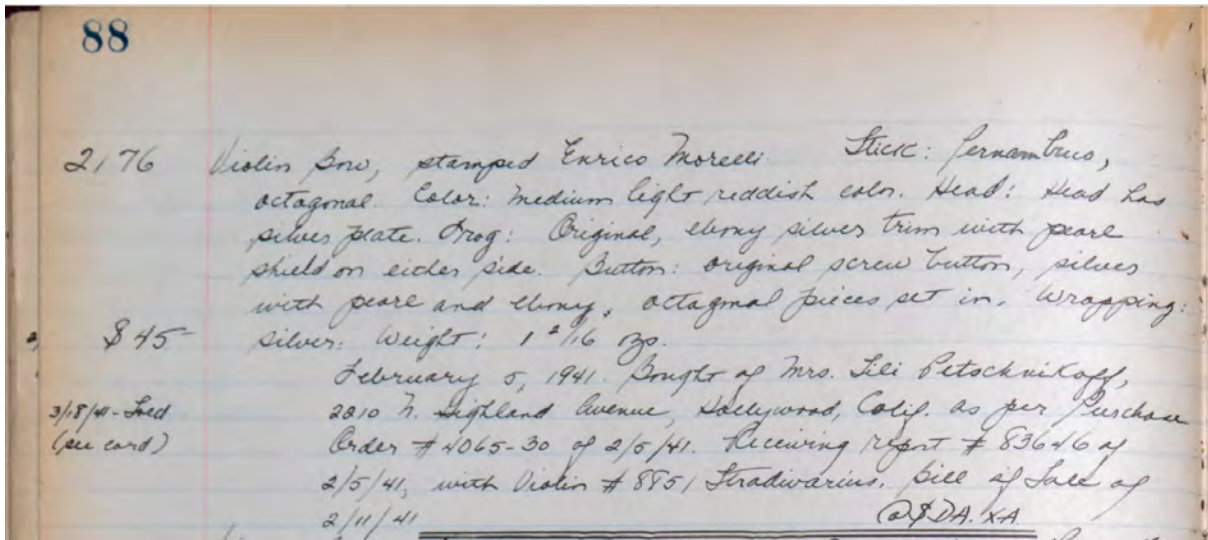 88
2176 Violin Bow, stamped Enrico Morelli. Stick: Pernambuco,
octagonal. Color: Medium light reddish color. Head: Head has
silver plate. Frog: Original, ebony silver trim with pearl
shield on either side. Button: original screw button, silver
with pearl and ebony, octagonal pieces set in. Wrapping:
$45- silver. Weight: 1 2/16 ozs.
February 5, 1941. Bought of Mrs. Lili Petschnikoff,
3/18/41- 2010 N. Highland Avenue, Hollywood, Calif. as per Purchase
(see card) Order #4065-30 of 2/5/41. Receiving report # 83646 of
2/5/41, with Violin # 8851 Stradivarius. Bill of Sale of
2/11/41